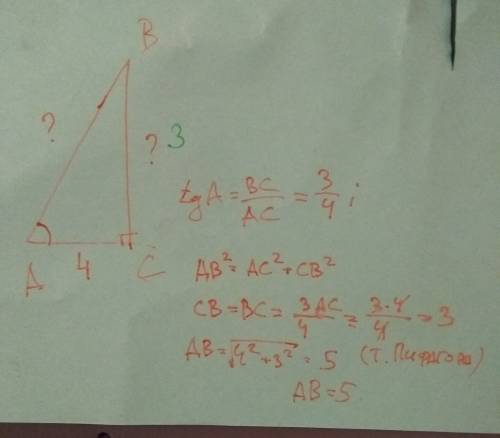 B
? ? 3
A 4 C
tg A = BC/AC = 3/4 ;
AB² = AC² + CB²
CB = BC = 3AC/4 = 3·4/4 = 3
AB = √4² + 3² = 5 (т. Пифагора)
AB = 5